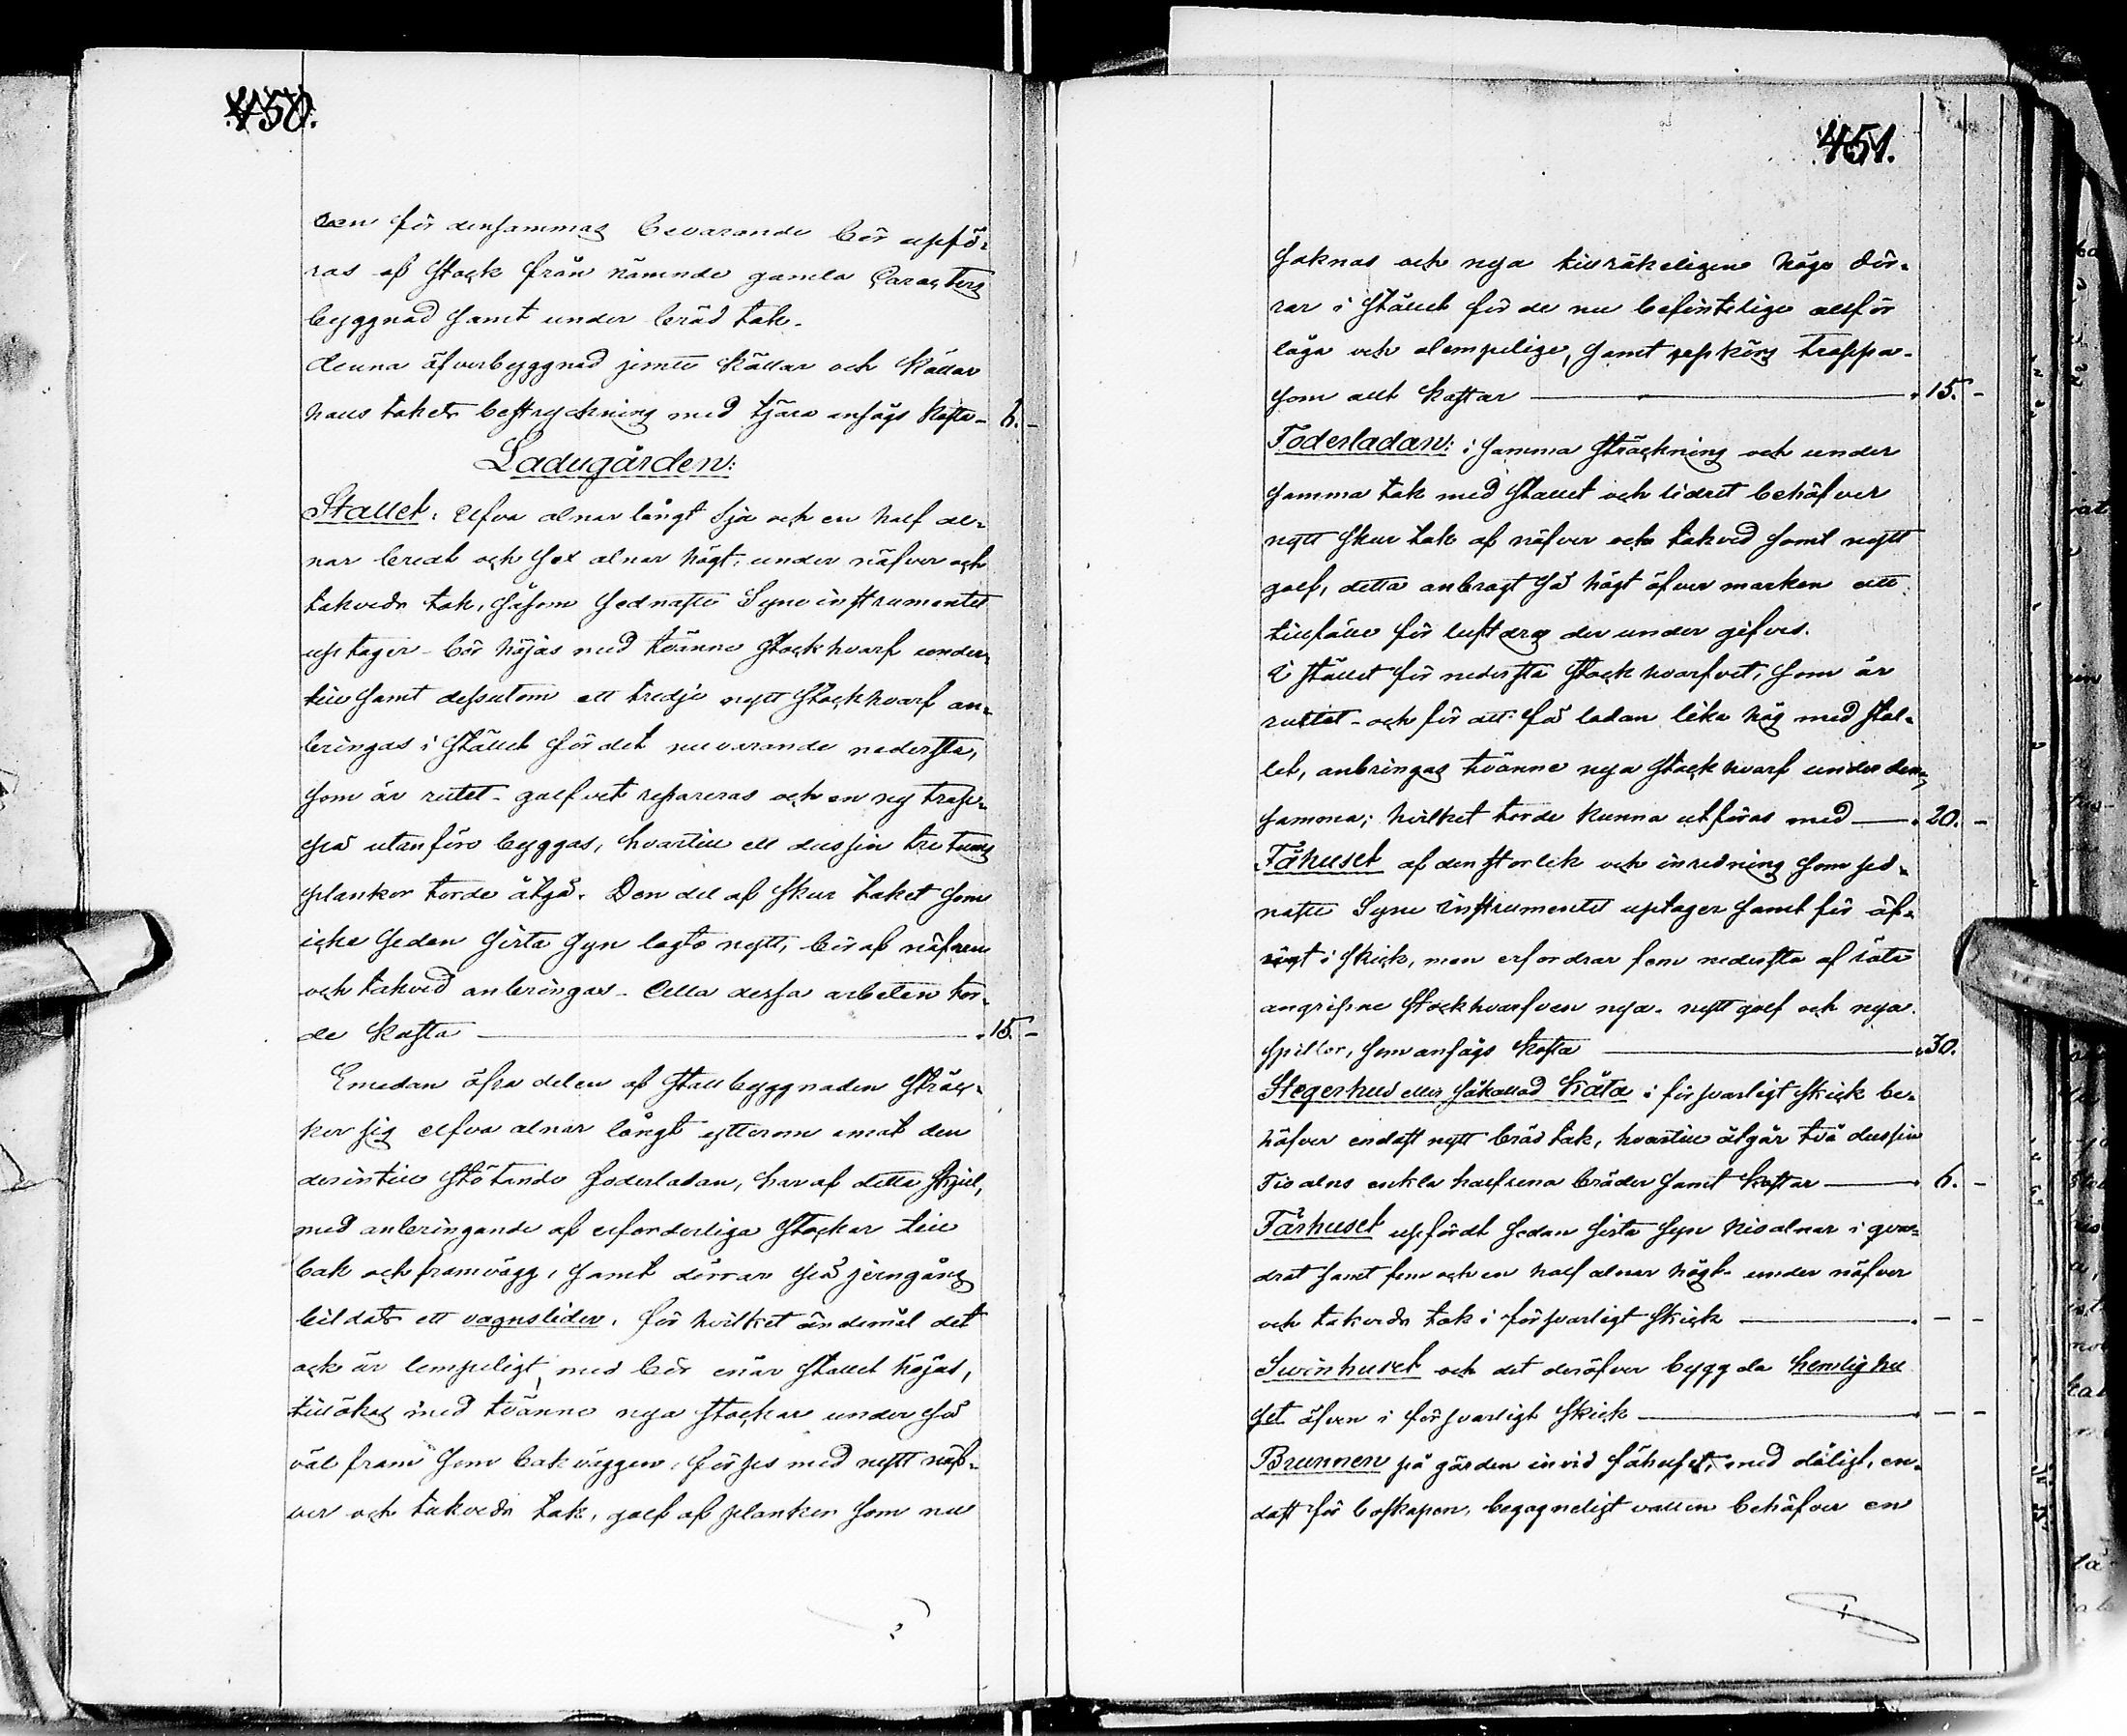 450.
ven för densammas bevarande bör uppfö-
ras af stock från nämnde gamla Caracters
byggnad samt under bräd tak.
denna öfverbyggnad jemte källar och källar
hals takets bestrykning med tjära ansågs kosta - 6. -
Ladugården:
Stallet: elfva alnar långt sju och en half al-
nar bredt och sex alnar högt, under näfver och
takveds tak, såsom sednaste Syneinstrumentet
uptager - bör höjas med tvänne stockhvarf under-
till samt dessutom ett tredje nytt stockhvarf an-
bringas i stället för det nuvarande nedersta,
som är rutet - golfvet repareras och en ny trap-
pa utanföre byggas, hvartill ett dussin tretums
plankor torde åtgå. Den del af skur taket som
icke sedan sista syn lagts nytt, bör af näfren
och takved anbringas - Alla dessa arbeten tor-
de kosta — " 15. -
Emedan öfra delen af stallbyggnaden sträc-
ker sig elfva alnar långt ytterom emot den
derintill stötande foderladan, har af detta skjul,
med anbringande af erforderliga stockar till
bak och framvägg, samt dörrar på jerngång
bildats ett vagnslider, för hvilket ändemål det
ock är lämpeligt, med bör enär stallet höjes,
tillökas med tvänne nya stockar under så
väl fram som bakväggen, förses med nytt näf-
ver och takveds tak, golf af plankor som nu
451.
saknas och nya tillräkeligen höga dör-
rar i stället för de nu befintelige allför
låga och olempelige, samt uppkörs trappa.
som allt kostar — " 15. -
Foderladan: i samma sträckning och under
samma tak med stallet och lidret behöfver
nytt skur tak af näfver och takved samt nytt
golf, detta anbragt så högt öfver marken att
tillfälle för luftdrag der under gifves.
I stället för nedersta stockhvarfvet, som är
ruttet - och för att få ladan lika hög med stal-
let, anbringas tvänne nya stockhvarf under den-
samma; hvilket torde kunna utföras med — " 20. -
Fähuset af den storlek och inredning som sed-
naste Syne instrumentet uptager samt för öf-
rigt i skick, men erfordrar fem nedersta af röta
angripne stockhvarfven nya - nytt golf och nya
spiltor, som ansågs kosta — " 30.
Stegerhus eller såkallad Kåta i försvarligt skick be-
höfver endast nytt bräd tak, hvartill åtgår två dussin
Tio alns enkla halfrena bräder samt kostar — " 6. -
Fårhuset uppfördt sedan sista syn nio alnar i qva-
drat samt fem och en half alnar högt - under näfver
och takveds tak i försvarligt skick — " - -
Svinhuset och det deröfver byggda hemlighu
set äfven i försvarligt skick — " - -
Brunnen på gården invid fähuset, med dåligt, en-
dast för boskapen, begagneligt vatten behöfver en